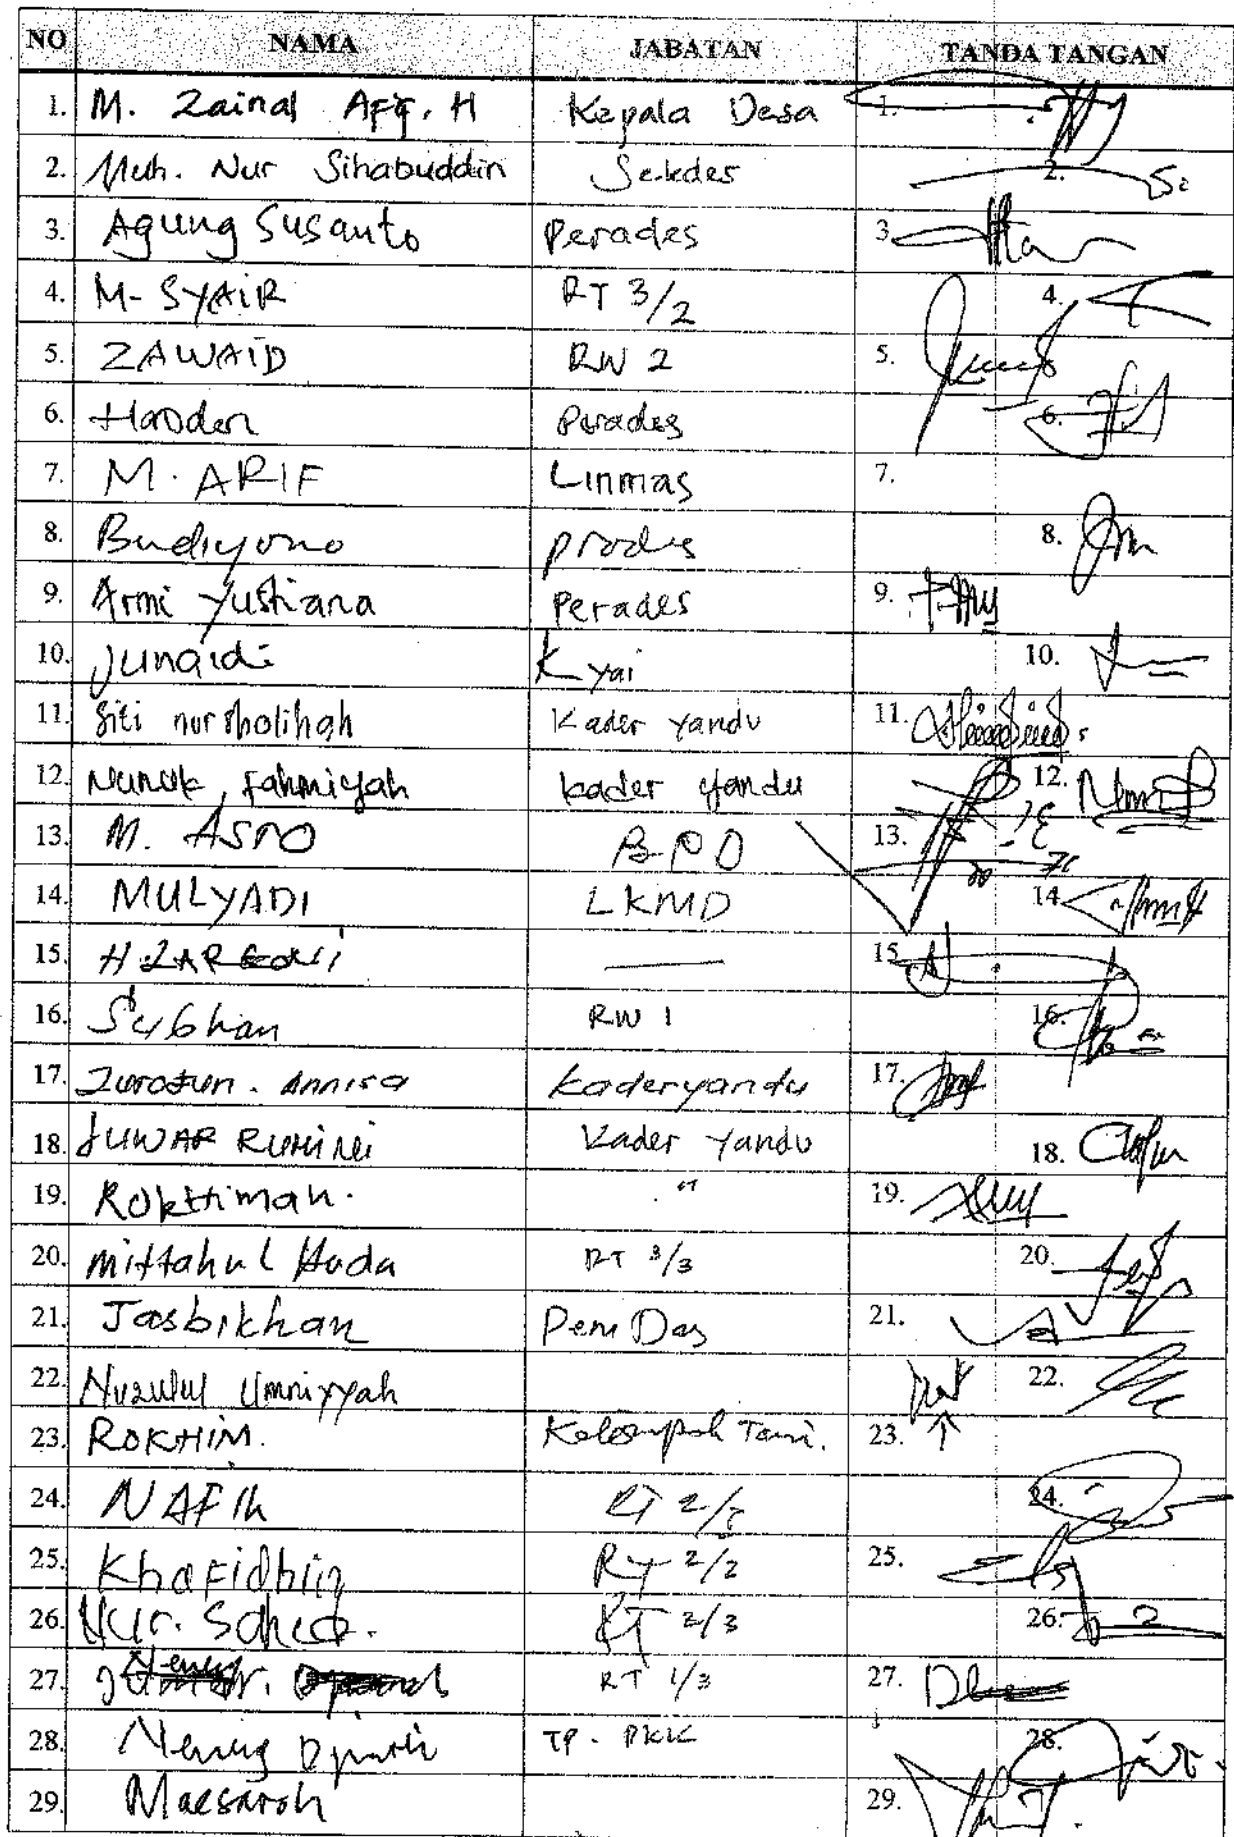 NO NAMA JABATAN TANDA TANGAN
1. M. Zainal Afif. H Kepala Desa 1.
2. Muh. Nur Sihabuddin Sekdes 2.
3. Agung Susanto Perades 3.
4. M. SYAIR RT 3/2 4.
5. ZAWAID RW 2 5.
6. Perades 6.
7. M. ARIF Linmas 7.
8. Budiyono prades 8.
9. Armi Yustiana Perades 9.
10. Junaidi Kyai 10.
11. Siti nur sholihah Kader Yandu 11.
12. Nunuk Fahmiyah kader yandu 12.
13. M. ASRO BPD 13.
14. MULYADI LKMD 14.
15. H 15.
16. Subhan RW 1 16.
17. Zurotun. Annisa kader yandu 17.
18. JUWAR Kader Yandu 18.
19. ROKHimah. " 19.
20. Miftahul Huda RT 3/3 20.
21. Jasbikhan 21.
22. Nuzulul Umniyyah 22.
23. ROKHIM. Kelompok Tani. 23.
24. NAFIK RT 24.
25. Khafidhin RT 2/2 25.
26. Nur. RT 2/3 26.
27. RT 1/3 27.
28. Neneng TP. PKK 28.
29. Maesaroh 29.